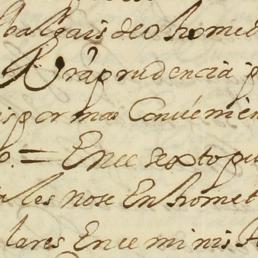 balgais de Ohomet
Vrã prudencia p
is por mas Conuenien
o. = En ce sexto pu
les nose En homet
lares En ce minist